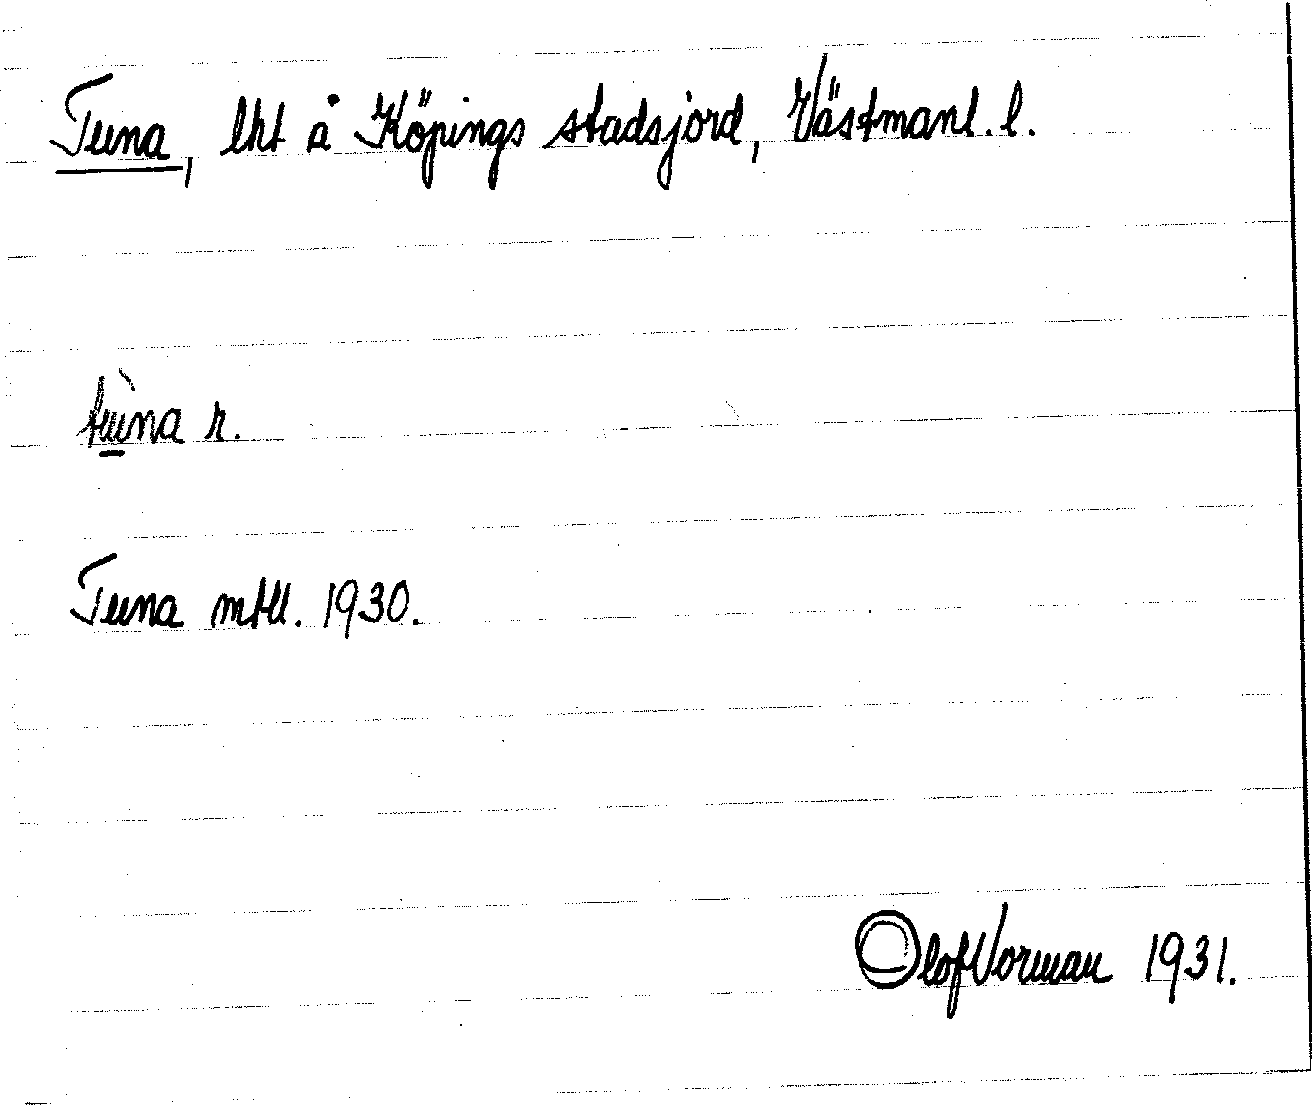 Tuna, lht å Köpings stadsjord, Västmanl. l.
tù̲na r.
Tuna mtll. 1930.
Olof Vorman 1931.